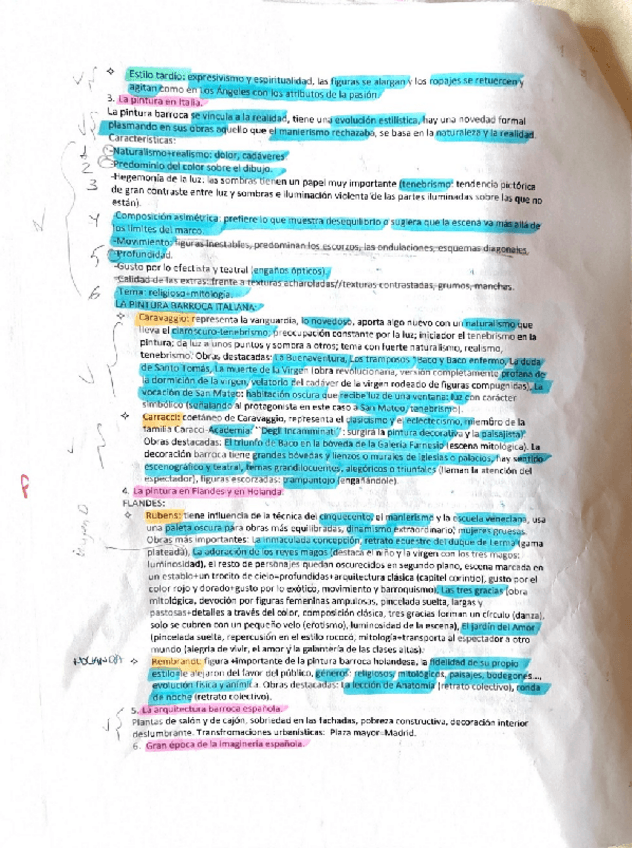 ❖ Estilo tardío: expresivismo y espiritualidad, las figuras se alargan y los ropajes se retuercen y
agitan como en Los Ángeles con los atributos de la pasión.
3. La pintura en Italia.
La pintura barroca se vincula a la realidad, tiene una evolución estilística, hay una novedad formal
plasmando en sus obras aquello que el manierismo rechazaba, se basa en la naturaleza y la realidad.
Características:
1 -Naturalismo+realismo: dolor, cadáveres
2 -Predominio del color sobre el dibujo.
3 -Hegemonía de la luz: las sombras tienen un papel muy importante (tenebrismo: tendencia pictórica
de gran contraste entre luz y sombras e iluminación violenta de las partes iluminadas sobre las que no
están).
4 -Composición asimétrica: prefiere lo que muestra desequilibrio o sugiera que la escena va más allá de
los límites del marco.
-Movimiento: figuras inestables, predominan los escorzos, las ondulaciones, esquemas diagonales.
5 -Profundidad.
-Gusto por lo efectista y teatral (engaños ópticos).
-Calidad de las extras: frente a texturas echaroladas//texturas contrastadas, grumos, manchas.
6 Tema: religioso+mitología.
LA PINTURA BARROCA ITALIANA:
❖ Caravaggio: representa la vanguardia, lo novedoso, aporta algo nuevo con un naturalismo que
lleva el claroscuro-tenebrismo; preocupación constante por la luz; iniciador el tenebrismo en la
pintura; da luz a unos puntos y sombra a otros; tema con fuerte naturalismo, realismo,
tenebrismo. Obras destacadas: La Buenaventura, Los tramposos, Baco y Baco enfermo, La duda
de Santo Tomás, La muerte de la Virgen (obra revolucionaria, versión completamente profana de
la dormición de la virgen, velatorio del cadáver de la virgen rodeado de figuras compungidas), La
vocación de San Mateo: habitación oscura que recibe luz de una ventana: luz con carácter
simbólico (señalando al protagonista en este caso a San Mateo, tenebrismo).
❖ Carracci: coetáneo de Caravaggio, representa el clasicismo y el eclecticismo, miembro de la
familia Caracci-Academia: "Degli Incamminati": surgirá la pintura decorativa y la paisajista.
Obras destacadas: El triunfo de Baco en la bóveda de la Galería Farnesio (escena mitológica). La
decoración barroca tiene grandes bóvedas y lienzos o murales de iglesias o palacios, hay sentido
escenográfico y teatral, temas grandilocuentes, alegóricos o triunfales (llaman la atención del
espectador), figuras escorzadas: trampantojo (engañándole).
4. La pintura en Flandes y en Holanda.
FLANDES:
❖ Rubens: tiene influencia de la técnica del cinquecento, el manierismo y la escuela veneciana, usa
una paleta oscura para obras más equilibradas, dinamismo extraordinario, mujeres gruesas.
Obras más importantes: La inmaculada concepción, retrato ecuestre del duque de Lerma (gama
plateada), La adoración de los reyes magos (destaca el niño y la virgen con los tres magos:
luminosidad), el resto de personajes quedan oscurecidos en segundo plano, escena marcada en
un establo+un trocito de cielo=profundidas+arquitectura clásica (capitel corintio), gusto por el
color rojo y dorado+gusto por lo exótico, movimiento y barroquismo), Las tres gracias (obra
mitológica, devoción por figuras femeninas ampulosas, pincelada suelta, largas y
pastosas+detalles a través del color, composición clásica, tres gracias forman un círculo (danza),
solo se cubren con un pequeño velo (erotismo), luminosidad de la escena), El jardín del Amor
(pincelada suelta, repercusión en el estilo rococó, mitología+transporta al espectador a otro
mundo (alegría de vivir, el amor y la galantería de las clases altas).
HOLANDA ❖ Rembrandt: figura +importante de la pintura barroca holandesa, la fidelidad de su propio
estilo le alejaron del favor del público, géneros: religiosos, mitológicos, paisajes, bodegones...,
evolución física y anímica. Obras destacadas: La lección de Anatomía (retrato colectivo), ronda
de noche (retrato colectivo).
5. La arquitectura barroca española.
Plantas de salón y de cajón, sobriedad en las fachadas, pobreza constructiva, decoración interior
deslumbrante. Transfromaciones urbanísticas: Plaza mayor-Madrid.
6. Gran época de la imaginería española.